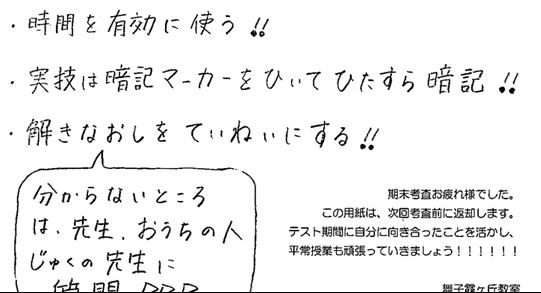 ・時間を有効に使う!!
・実技は暗記マーカーをひいてひたすら暗記!!
・解きなおしをていねいにする!!
分からないところ
は、先生、おうちの人
じゅくの先生に
質問
期末考査お疲れ様でした。
この用紙は、次回考査前に返却します。
テスト期間に自分に向き合ったことを活かし、
平常授業も頑張っていきましょう!!!!!!
舞子霞ヶ丘教室